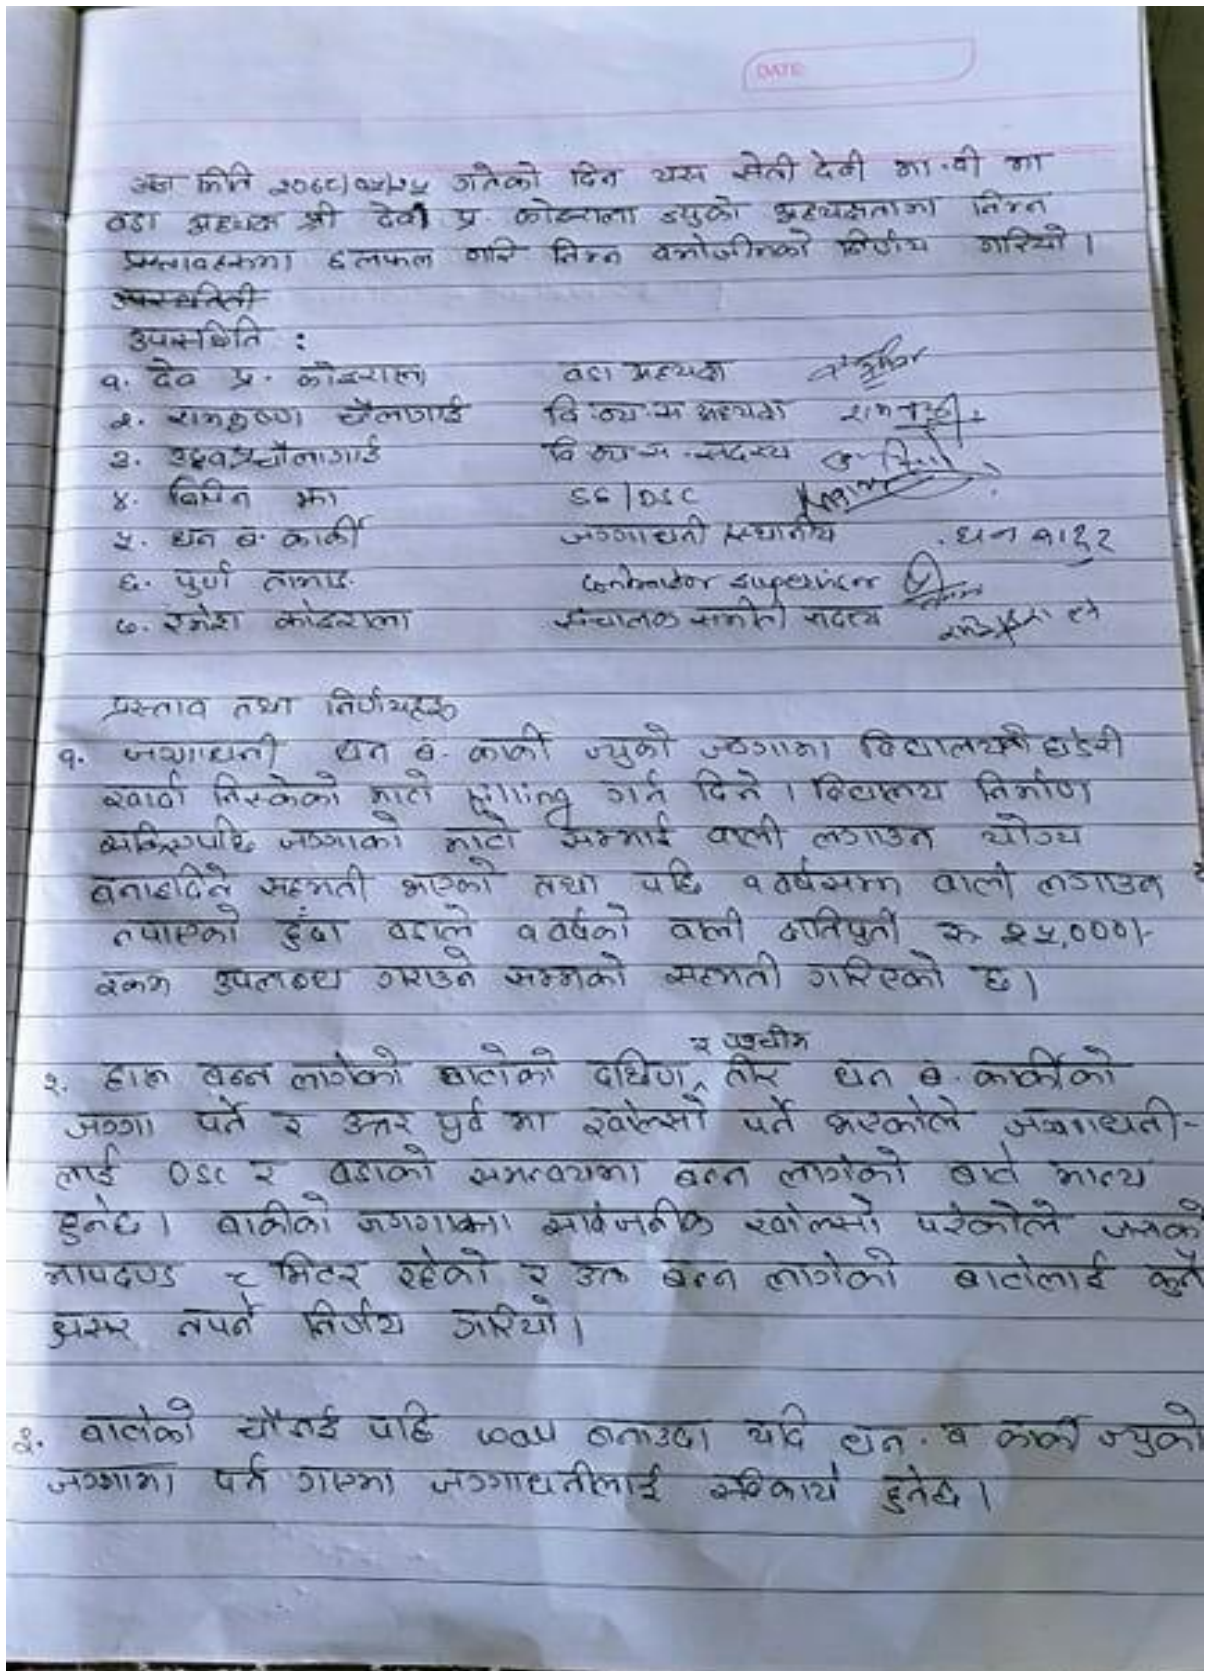 DATE
आज मिति गतेको दिन यस सेती देवी मा.वी मा
वडा अध्यक्ष श्री देवी प्र. कोइराला ज्युको अध्यक्षतामा निम्न
प्रस्तावहरुमा छलफल गरि निम्न बमोजीमको निर्णय गरियो।
उपस्थिति :
१. देव प्र. कोइराला वडा अध्यक्ष
२. रामकृष्ण चौलागाई वि.व्य.स अध्यक्ष
३. उद्दव प्र चौलागाई वि.व्य.स.सदस्य
४. बिपिन झा SE/DSC
५. धन ब. कार्की जग्गाधनी स्थानीय धन बाहदुर
६. पुर्ण तामाङ contractor supervisor
७. रमेश कोइराला संचालक समीती सदस्य
प्रस्ताव तथा निर्णयहरु
१. जग्गाधनी धन ब. कार्की ज्युको जग्गामा विद्यालयको
निस्केको माटो filling गर्न दिने। विद्यालय निर्माण
सकिएपछि जग्गाको माटो सम्माई वाली लगाउन योग्य
बनाइदिने सहमती भएको तथा पछि १ वर्षसम्म वाली लगाउन
नपाएको हुँदा वडाले १ वर्षको वाली क्षतिपुर्ती रु २५,०००/-
रकम उपलब्ध गराउने सम्मको सहमती गरिएको छ।
२. हाल बन्न लागेको बाटोको दक्षिण र पश्चीम तीर धन ब. कार्कीको
जग्गा पर्ने र उत्तर पुर्व मा खोल्सो पर्ने भएकोले जग्गाधनी-
लाई DSC र वडाको समन्वयमा बन्न लागेको बाटो मान्य
हुनेछ। बाकीको जग्गामा सार्वजनीक खोल्सो परेकोले जसको
मापदण्ड ८ मिटर रहेको र उक्त बन्न लागेको बाटोलाई कुनै
असर नपर्ने निर्णय गरियो।
३. बाटोको चौडाई पछि way बनाउदा यदि धन.ब कार्की ज्युको
जग्गामा पर्न गएमा जग्गाधनीलाई स्वीकार्य हुनेछ।